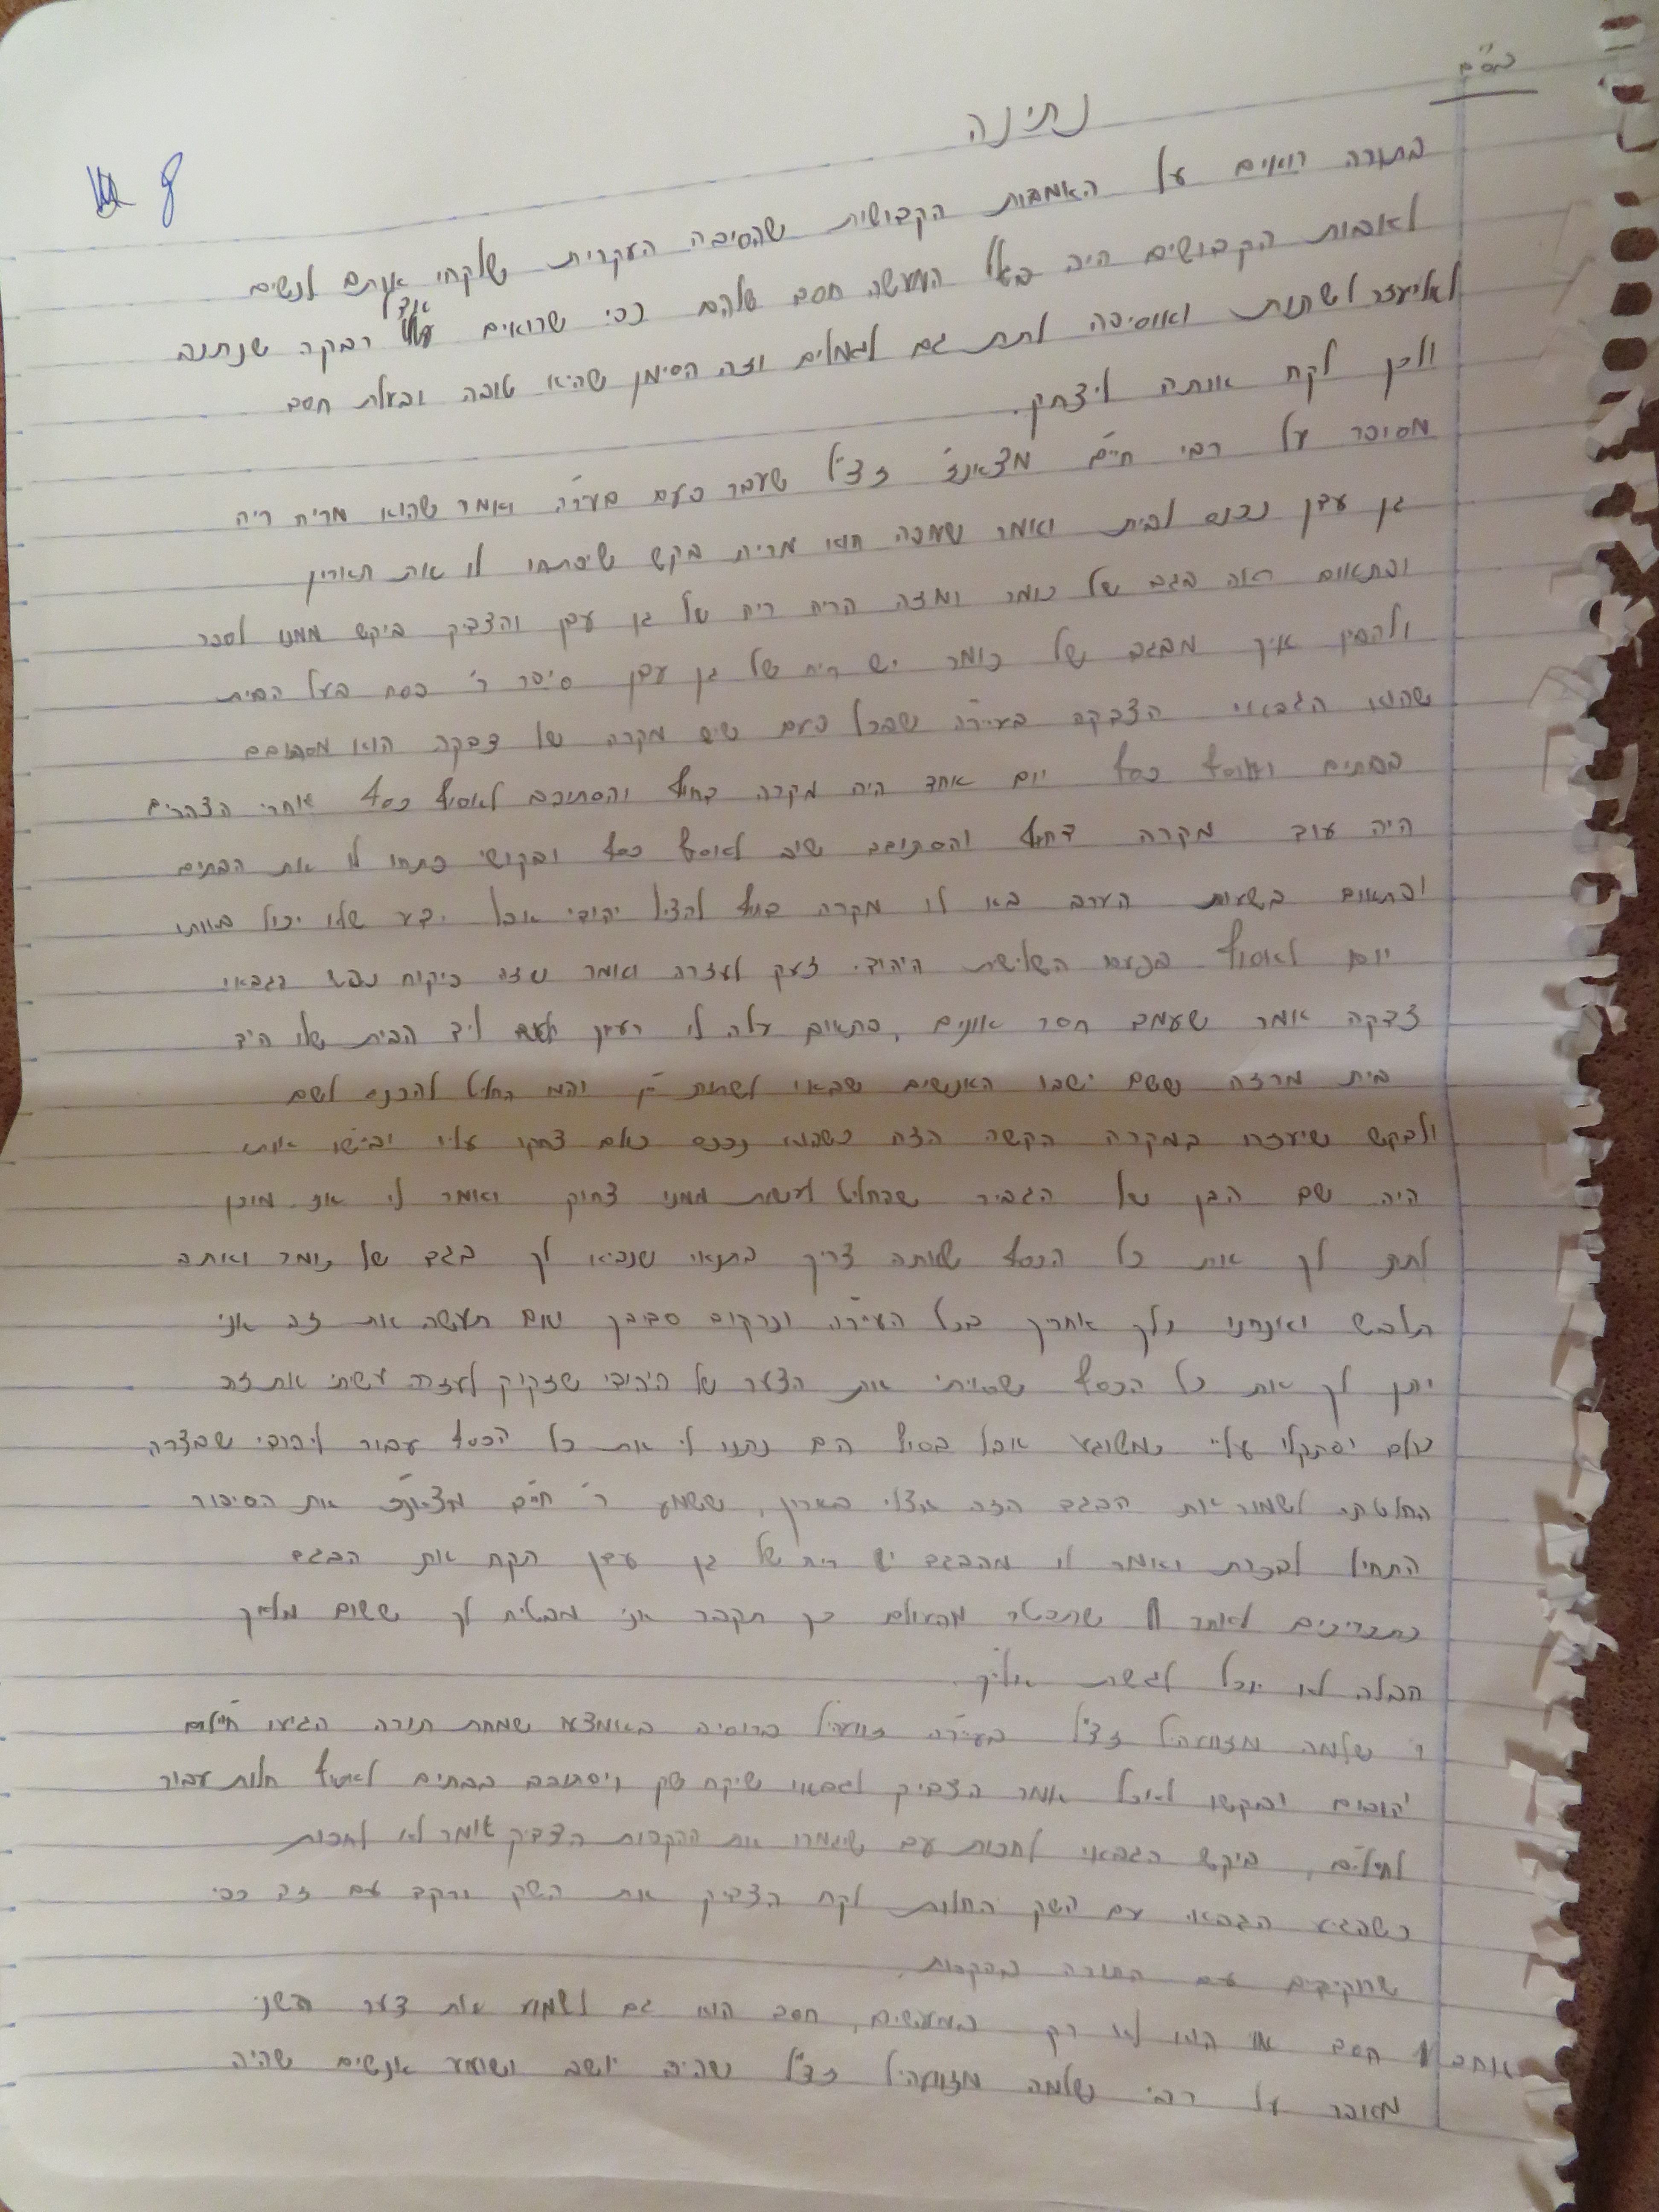 בס"ד
נתינה
בתורה רואים על האמהות הקדושות שהסיבה העקרית שלקחו אותם לנשים
לאבות הקדושים היה בגלל המעשה חסד שלהם כפי שרואים אצל רבקה שנתנה
לאליעזר לשתות ואוסיפה לתת גם לגמלים וזה הסימן שהיא טובה ובעלת חסד
ולכן לקח אותה ליצחק.
מסופר על רבי חיים מצאנז זצ"ל שעבר פעם בעירה ואמר שהוא מריח ריח
גן עדן נכנס לבית ואמר שמפה הוא מריח בקש שיפתחו לו את הארון
ופתאום ראה בגד של כומר ומזה הריח ריח של גן עדן והצדיק ביקש ממנו לספר
ולהבין איך מבגד של כומר יש ריח של גן עדן סיפר ר' פסח בעל הבית
שהוא הגבאי הצדקה בעירה שבכל פעם שיש מקרה של צדקה הוא מסתובב
בבתים ואוסף כסף יום אחד היה מקרה דחוף והסתובב לאסוף כסף אחרי הצהרים
היה עוד מקרה דחוף והסתובב שוב לאוסף כסף ובקושי פתחו לו את הבתים
ופתאום בשעות הערב בא לו מקרה דחוף להציל יהודי אבל ידע שלו יכול באותו
יום לאסוף בפעם השלישת היהודי זעק לעזרה ואמר שזה פיקוח נפש הגבאי
צדקה אמר שעמד חסר אונים, פתאום עלה לי רעיון ליד הבית שלו היה
בית מרזח ששם ישבו האנשים שבאו לשתות יין החליט להכנס לשם
ולבקש שיעזרו במקרה הקשה הזה כשהוא נכנס כולם צחקו עליו וביישו אותו
היה שם הבן של הגביר שהחליט לעשות ממני צחוק ואמר לי אני מוכן
לתת לך את כל הכסף שאתה צריך בתנאי שנביא לך בגד של כומר ואתה
תלבש ואנחנו נלך אחריך בכל העירה ונרקוד סביבך ואם תעשה את זה אני
יתן לך את כל הכסף שראיתי את הצער של היהודי שזקוק לעזרה עשיתי את זה
כולם יסתכלו עליי כמשוגע אבל בסוף הם נתנו לי את כל הכסף עבור ליהודי שבצרה
החלטתי לשמור את הבגד הזה אצלי בארון, ששמע ר' חיים מצאנז את הסיפור
התחיל לבכות ואמר לו מהבגד יש ריח של גן עדן תקח את הבגד
כתכריכים לאחר שתפטר מהעולם כך תקבר אני מבטיח לך ששום מלאך
חבלה לא יוכל לגשת אליך.
ר' שלמה מזוועהיל זצ"ל בעירה זוועהיל ברוסיה באמצע שמחת תורה הגיעו חיילים
יהודים ובקשו לאכול אמר הצדיק לגבאי שיקח שק ויסתובב בבתים לאסוף חלות עבור
לחיילים, ביקש הגבאי לחכות עד שיגמרו את ההקפות הצדיק אומר לא לחכות
כשהגיע הגבאי עם השק החלות לקח הצדיק את השק ורקד עם זה כפי
שרוקדים עם התורה בהקפות.
חסד הוא לא רק במעשים, חסד הוא גם לשמוע את צער השני
מסופר על רבי שלמה מזוועהיל זצ"ל שהיה יושב ושומע אנשים שהיה